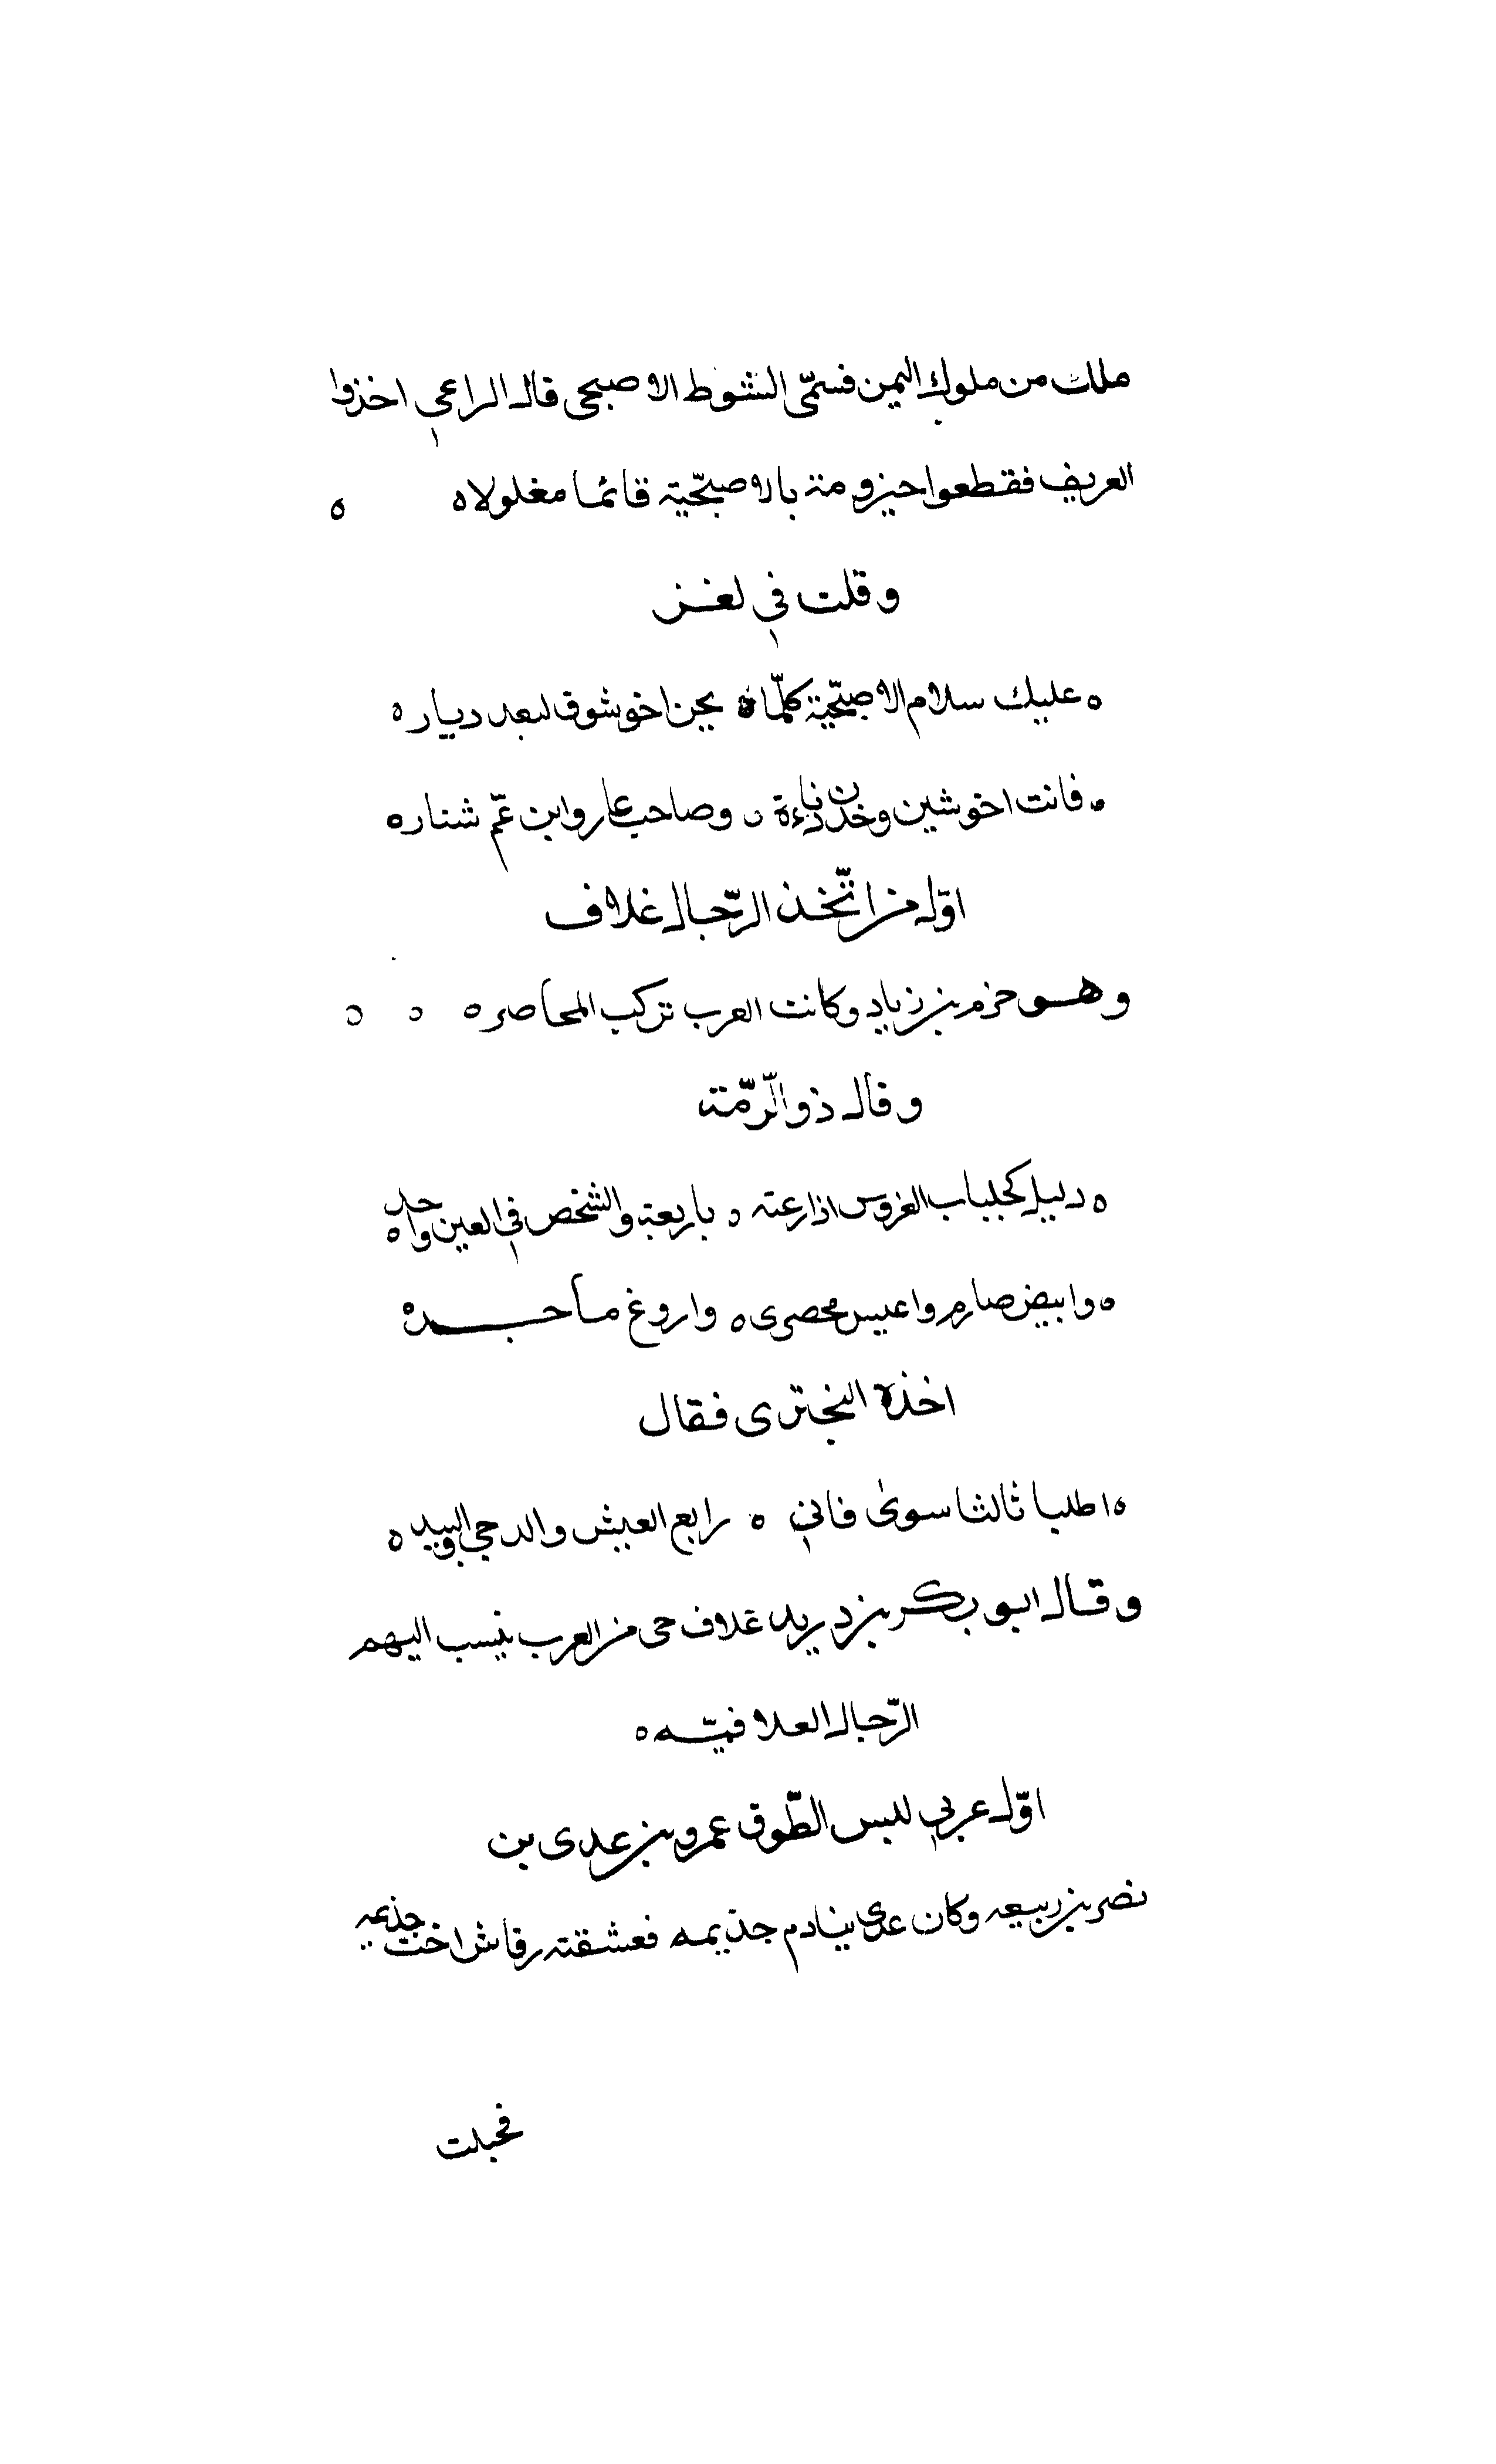 ملك من ملوك اليمن فسمّى الشوط الاصبحى قال الراعي اخذوا
العريف فقطعوا حيزومة بالاصبحّية قائما مغلولا ه ه
وقلت في لغز
ه عليك سلام الاصبحّية كلّما ه يحن اخو شوق لبعد دياره
ه فانت اخو شين وخدن دناءة ه وصاحب عار وابن عمّ شناره
اوّل من اتّخذ الرّحال غلاف
وهو حزم بن زياد وكانت العرب تركب المحاصر ه ه ه
وقال ذو الرّمة
ه دليل كجلباب العروس اذارعته ه باربعة والشخص في العين واحد ه
ه وابيض صارم واعيس محصرى ه واروغ ماجد ه
اخذه البختري فقال
ه اطلبا ثالثا سوىٰ فاني ه رابع العيش والدجي والبيد ه
وقال ابو بكر بن دريد غلاف حى من العرب ينسب اليهم
الرّحال العلافيّه ه
اوّل عربي لبس الطّوق عمرو بن عدى بن
نصر بن ربيعه وكان عدى ينادم جذيمه فعشقته رقاش اخت جذيمه
فحبلت